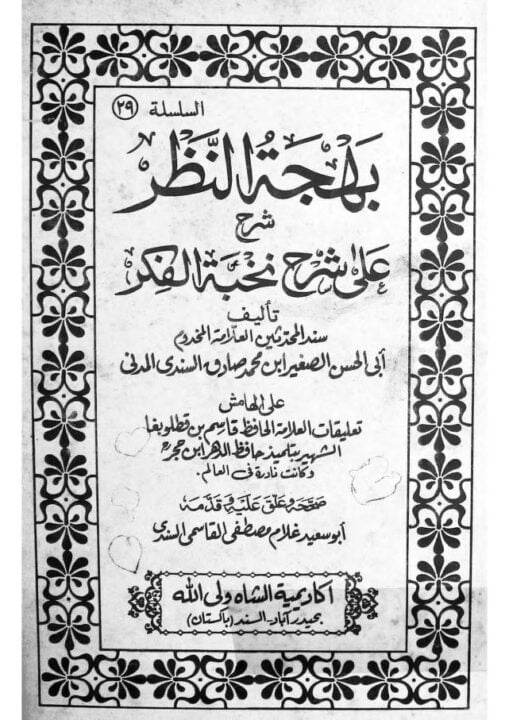 السلسلة ٢٩
بهجة النظر
شرح
على شرح نخبة الفكر
تأليف
سند المحدثين العلامة المخدوم
أبي الحسن الصغير ابن محمد صادق السندي المدني
على الهامش
تعليقات العلامة الحافظ قاسم بن قطلوبغا
الشهير بتلميذ حافظ الدهر ابن حجر
وكانت نادرة في العالم.
صححه وعلق عليه وقدمه
أبو سعيد غلام مصطفى القاسمي السندي
أكاديمية الشاه ولي الله
بحيدرآباد-السند (باكستان)